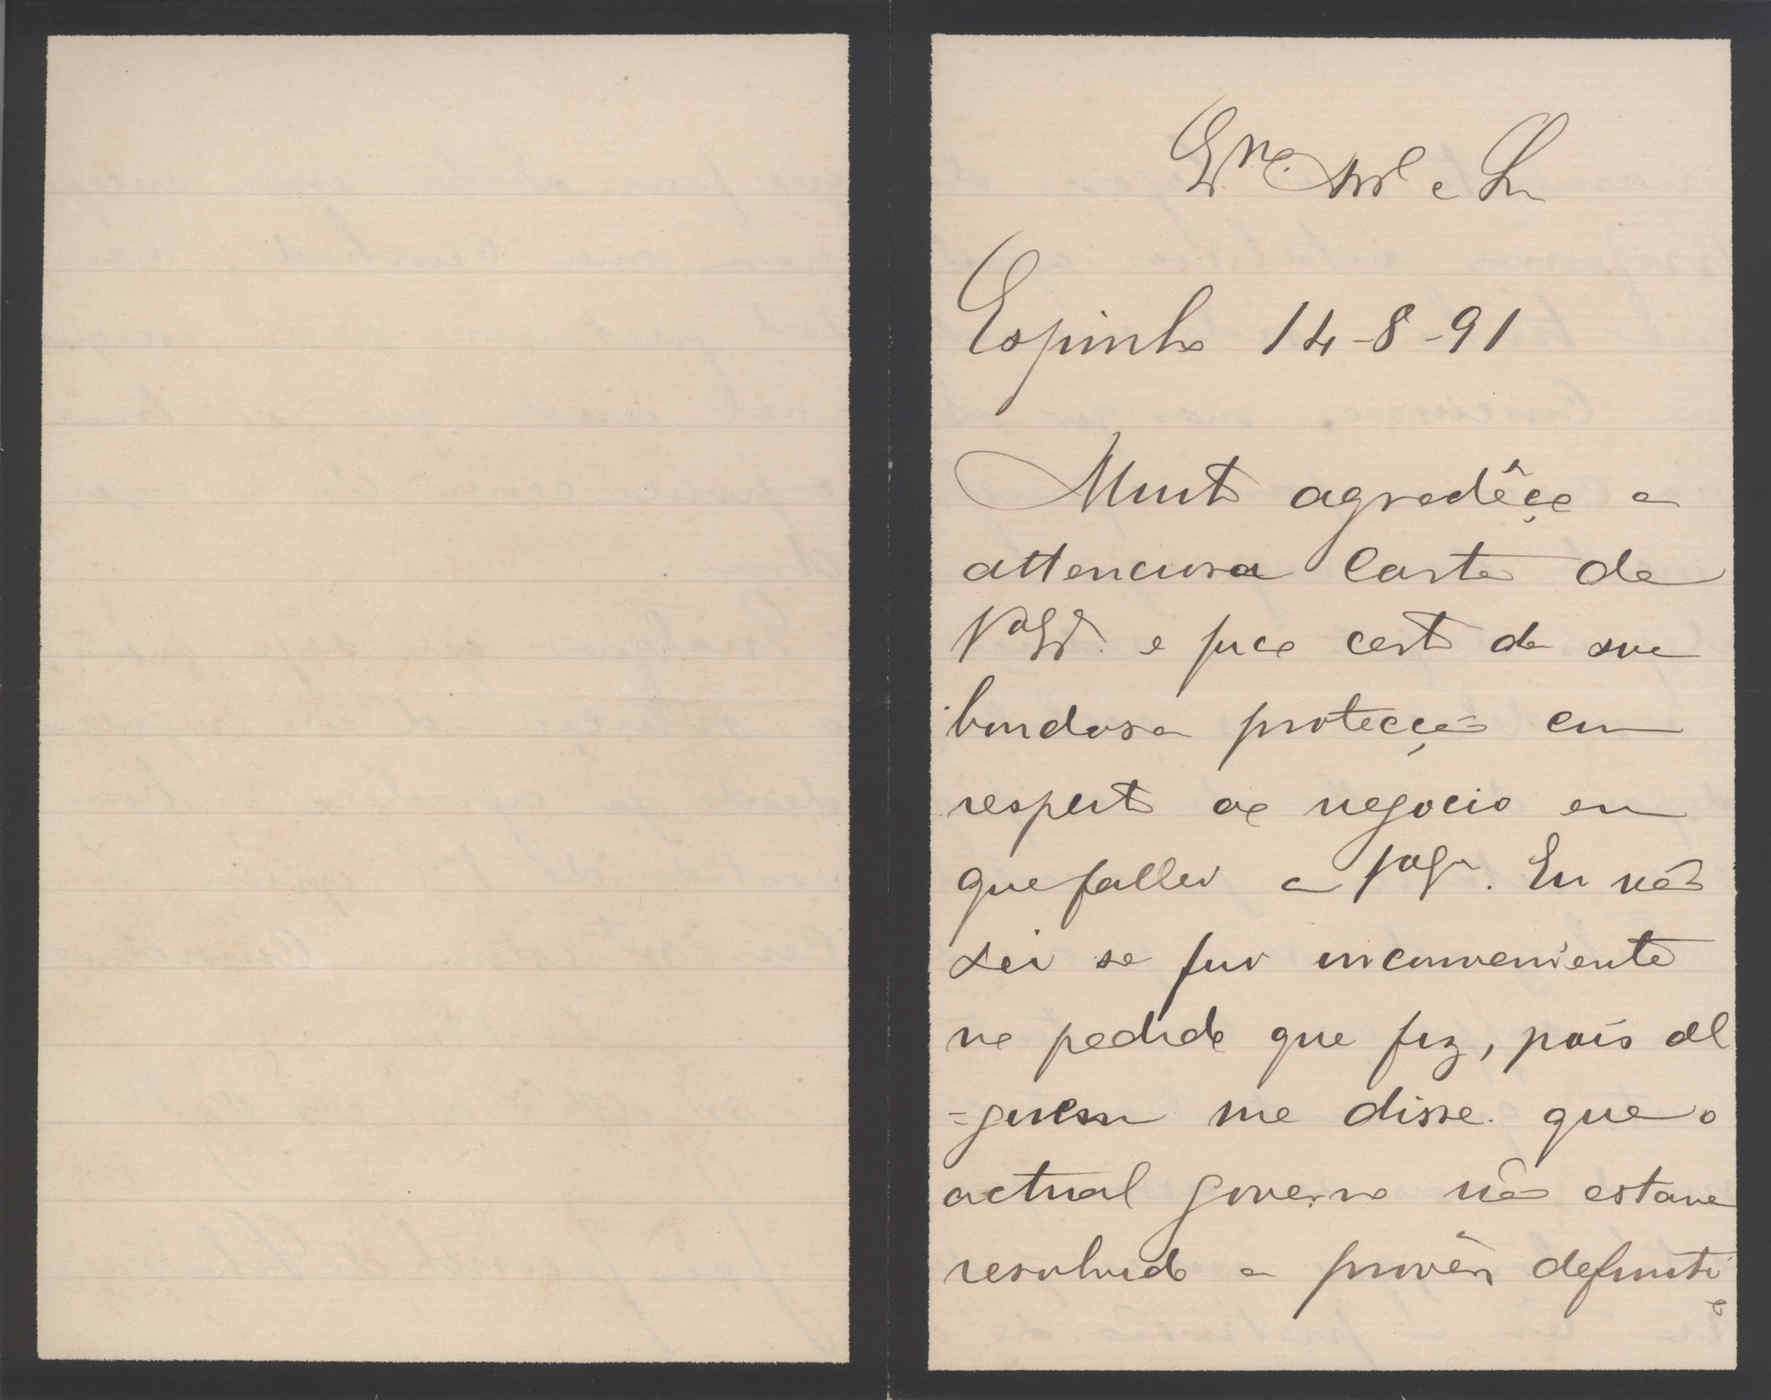 Exmo. Amo e Sr
Espinho 14-8-91
Muito agradêço a
attenciosa carta de
V. Exa. e fico certo da sua
bondosa protecção em
respeito ao negocio em
que fallei a V. Exa. Eu não
sei se fui inconveniente
no pedido que fiz, pois al
=guem me disse que o
actual governo não estava
resolvido a provêr definiti